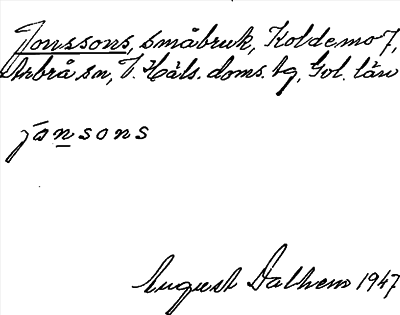 Jonssons, småbruk, Koldemo 7,
Arbrå sn, V. Häls. doms. tg, Gvl. län
jansons
August Dalhem 1947